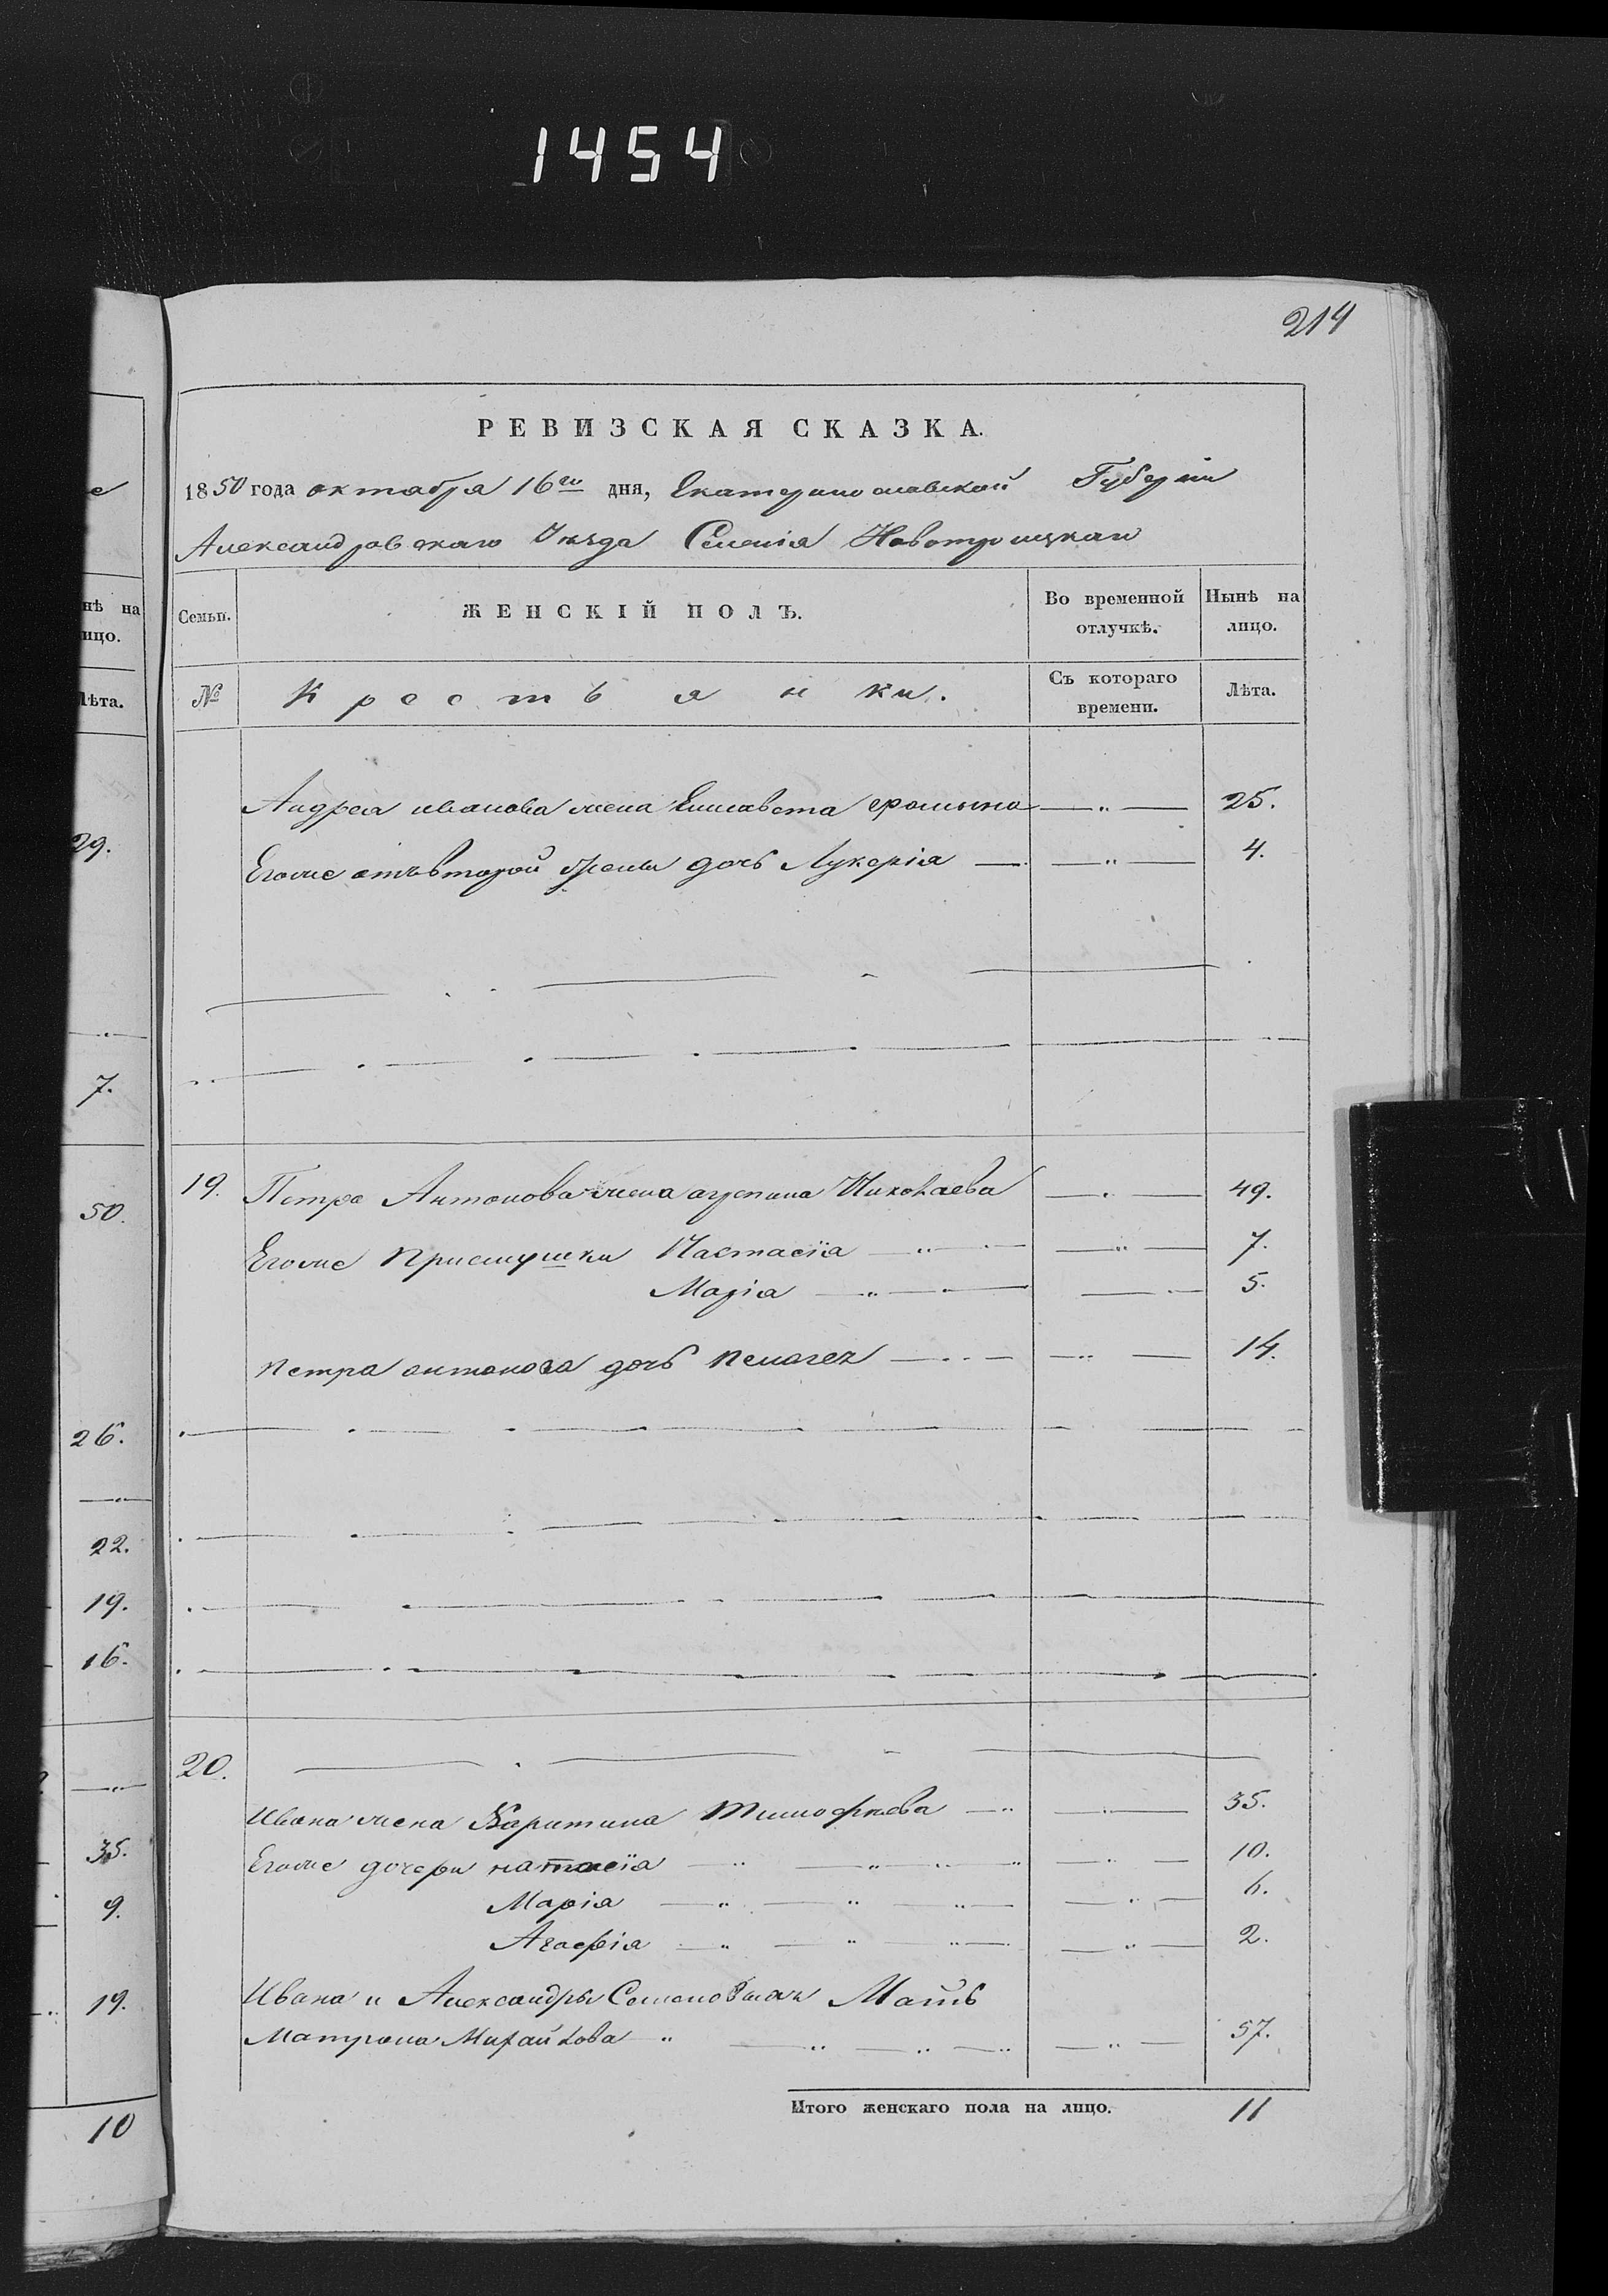 1454
214
РЕВИЗСКАЯ СКАЗКА.
1850 года октября 16го дня, Екатеринославской Губерніи
Александровскаго Уѣзда Селенія Новотроицкаго
нѣ на
ицо.
Лѣта.
29.
7.
50.
26.
22.
19.
16.
35.
9.
19.
10
Семьи.
ЖЕНСКІЙ ПОЛЪ.
Во временной отлучкѣ.
Нынѣ на лицо.
№
Крестьянки.
Съ котораго времени.
Лѣта.
Андрея иванова жена Елисавета 25.
Егоже отъ второй жены дочь Лукерія 4.
19. Петра Антонова жена агрепина Николаева 49.
Егоже приемушки Настасія 7.
Марія 5.
петра антонова дочь пелагея 14.
20.
Ивана жена Харитина Тимофѣева 35.
Егоже дочери настасія 10.
Марія 6.
Агафія 2.
Ивана и Александры Семеновыхъ Мать
Матрона Михайлова 57.
Итого женскаго пола на лицо. 11